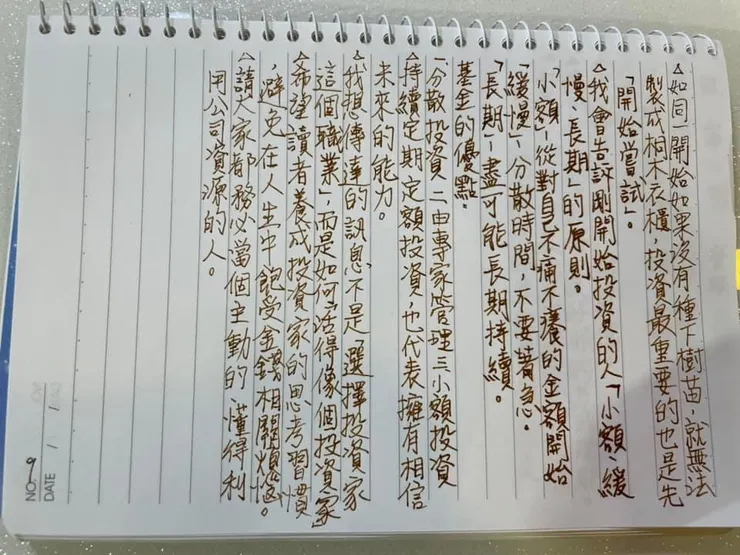 △如同一開始如果沒有種下樹苗，就無法
製成桐木衣櫃，投資最重要的也是先
「開始嘗試」。
△我會告訴剛開始投資的人「小額、緩
慢、長期」的原則。
「小額」-從對自己不痛不癢的金額開始
「緩慢」-分散時間，不要著急。
「長期」-盡可能長期持續。
基金的優點：
一分散投資 二由專家管理 三小額投資
△持續定期定額投資，也代表擁有相信
未來的能力。
△我想傳達的訊息不是「選擇投資家
這個職業」，而是如何「活得像個投資家
△希望讀者養成投資家的思考習慣
，避免在人生中飽受金錢相關煩惱。
△請大家都務必當個主動的、懂得利
用公司資源的人。
NO. 9
DATE / /